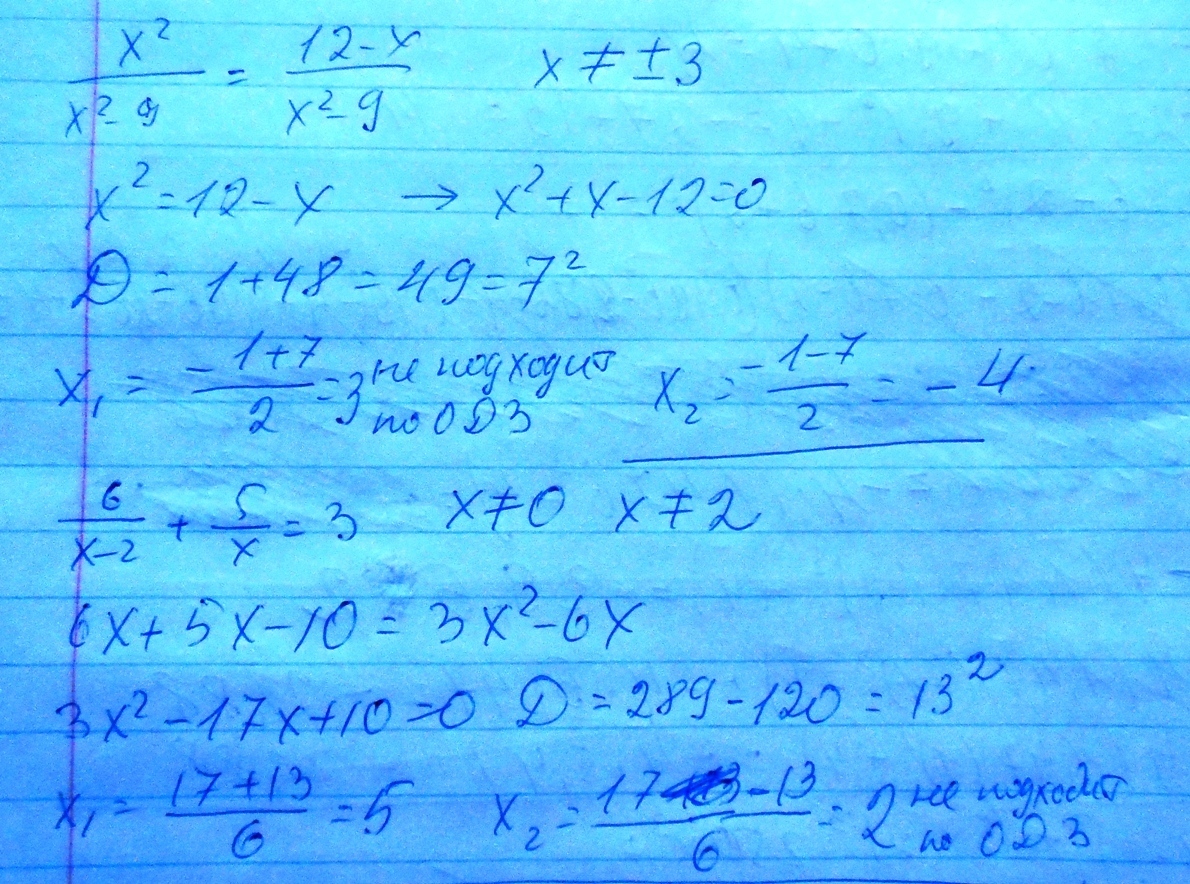 x²/(x²-9) = (12-x)/(x²-9) x ≠ ±3
x² = 12-x → x²+x-12=0
D = 1+48 = 49 = 7²
x₁ = (-1+7)/2 = 3 не подходит по ОДЗ x₂ = (-1-7)/2 = -4
6/(x-2) + 5/x = 3 x≠0 x≠2
6x+5x-10 = 3x²-6x
3x²-17x+10=0 D = 289-120 = 13²
x₁ = (17+13)/6 = 5 x₂ = (17-13)/6 = 2 не подходит по ОДЗ